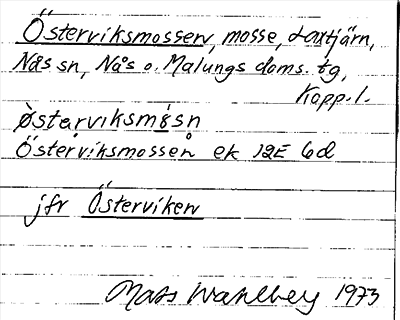 Österviksmossen, mosse, Laxtjärn,
Nås sn, Nås o. Malungs doms. tg,
Kopp. l.
östərviksmåsn
Österviksmossen ek 12E 6d
jfr Österviken
Mats Wahlberg 1973